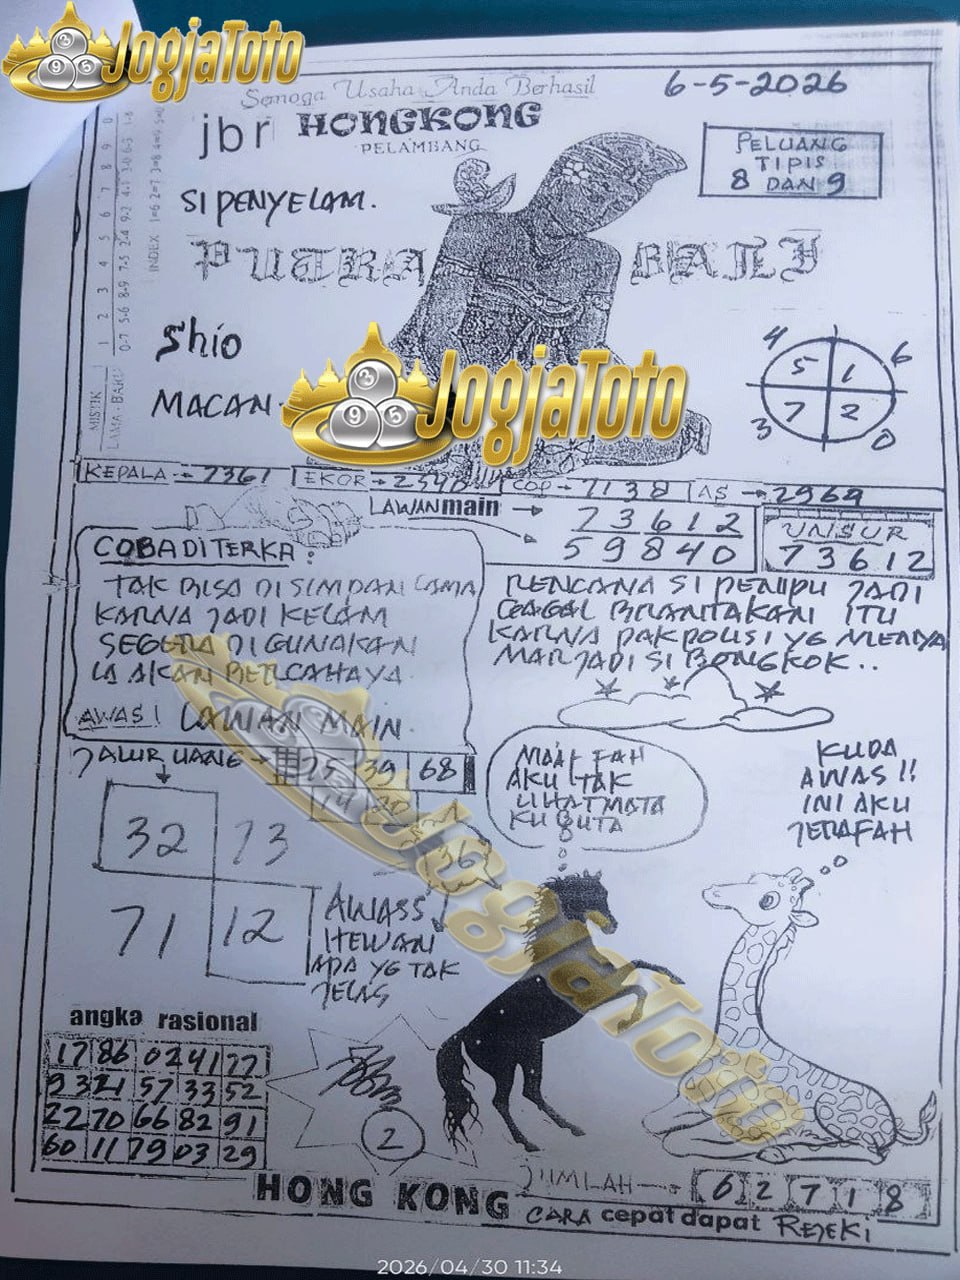 JogjaToto
Semoga Usaha Anda Berhasil
6-5-2026
jbr HONGKONG
PELAMBANG
PELUANG
TIPIS
8 DAN 9
SI PENYELAM.
PUTRA BALI
Shio
MACAN.
JogjaToto
4 6
5 1
7 2
3 0
KEPALA → 7361
EKOR → 2540
COP → 7138
AS → 2969
LAWAN main →
73612
59840
UNSUR
73612
COBA DITERKA:
TAK BISA DI SIMPAN LAMA
KARNA JADI KELAM
SEGERA DI GUNAKAN
IA AKAN BERCAHAYA
AWAS! LAWAN MAIN.
RENCANA SI PENIPU JADI
GAGAL BRANTAKAN ITU
KARNA PAK POLISI YG MENYA
MAR JADI SI BONGKOK..
JALUR UANG → 25 39 68
14
32 73
71 12
36
AWASS
HEWAN
ADA YG TAK
JELAS
MAAF FAH
AKU TAK
LIHAT MATA
KU BUTA
KUDA
AWAS!!
INI AKU
JERAFAH
JogjaToto
angka rasional
17 86 02 41 77
93 21 57 33 52
22 70 66 82 91
60 11 79 03 29
2
HONG KONG
JUMLAH → 6 2 7 1 8
CARA cepat dapat REJEKI
2026/04/30 11:34